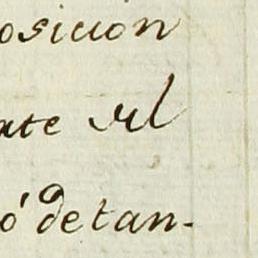 osicion
ate el
ó detan-